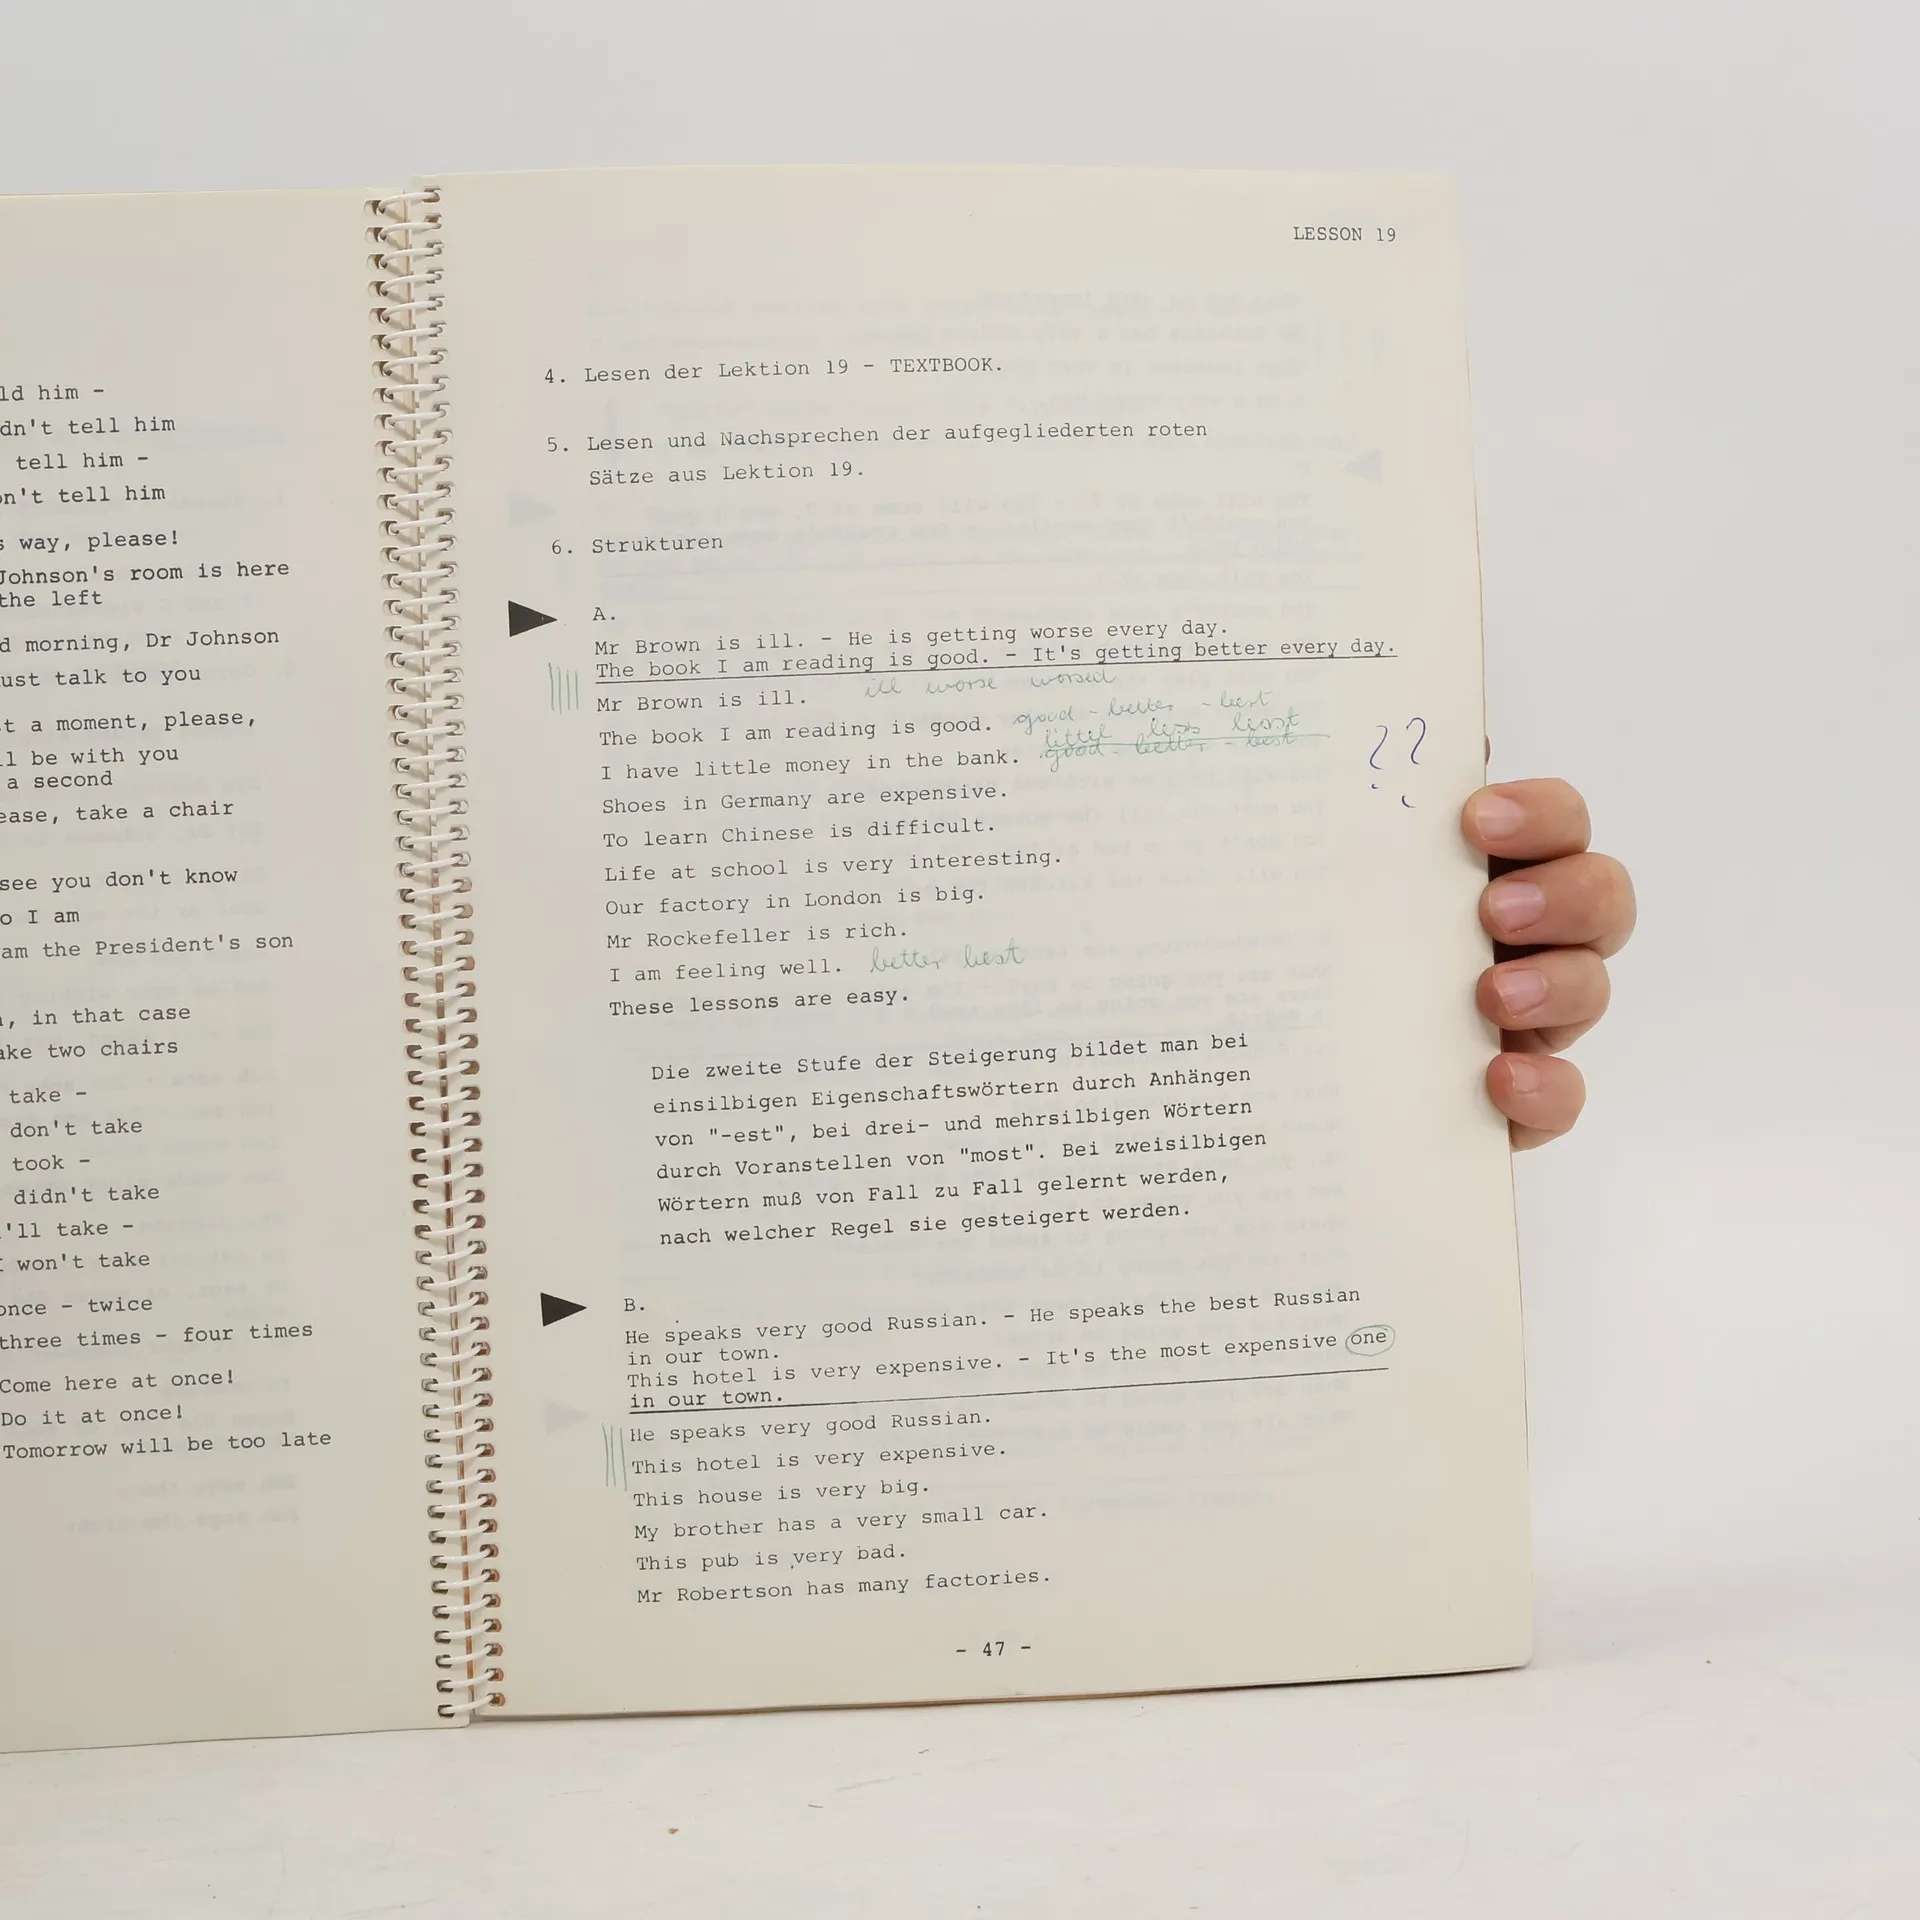 ld him -
dn't tell him
tell him -
on't tell him
s way, please!
Johnson's room is here
the left
d morning, Dr Johnson
ust talk to you
st a moment, please,
ll be with you
a second
ease, take a chair
see you don't know
o I am
am the President's son
, in that case
ake two chairs
take -
don't take
took -
didn't take
'll take -
I won't take
once - twice
three times - four times
Come here at once!
Do it at once!
Tomorrow will be too late
LESSON 19
4. Lesen der Lektion 19 - TEXTBOOK.
5. Lesen und Nachsprechen der aufgegliederten roten
Sätze aus Lektion 19.
6. Strukturen
A.
Mr Brown is ill. - He is getting worse every day.
The book I am reading is good. - It's getting better every day.
Mr Brown is ill. ill worse worsed
The book I am reading is good. good - better - best
littel less lesst
I have little money in the bank. good - better - best
??
Shoes in Germany are expensive.
To learn Chinese is difficult.
Life at school is very interesting.
Our factory in London is big.
Mr Rockefeller is rich.
I am feeling well. better best
These lessons are easy.
Die zweite Stufe der Steigerung bildet man bei
einsilbigen Eigenschaftswörtern durch Anhängen
von "-est", bei drei- und mehrsilbigen Wörtern
durch Voranstellen von "most". Bei zweisilbigen
Wörtern muß von Fall zu Fall gelernt werden,
nach welcher Regel sie gesteigert werden.
B.
He speaks very good Russian. - He speaks the best Russian
in our town.
This hotel is very expensive. - It's the most expensive one
in our town.
He speaks very good Russian.
This hotel is very expensive.
This house is very big.
My brother has a very small car.
This pub is very bad.
Mr Robertson has many factories.
- 47 -